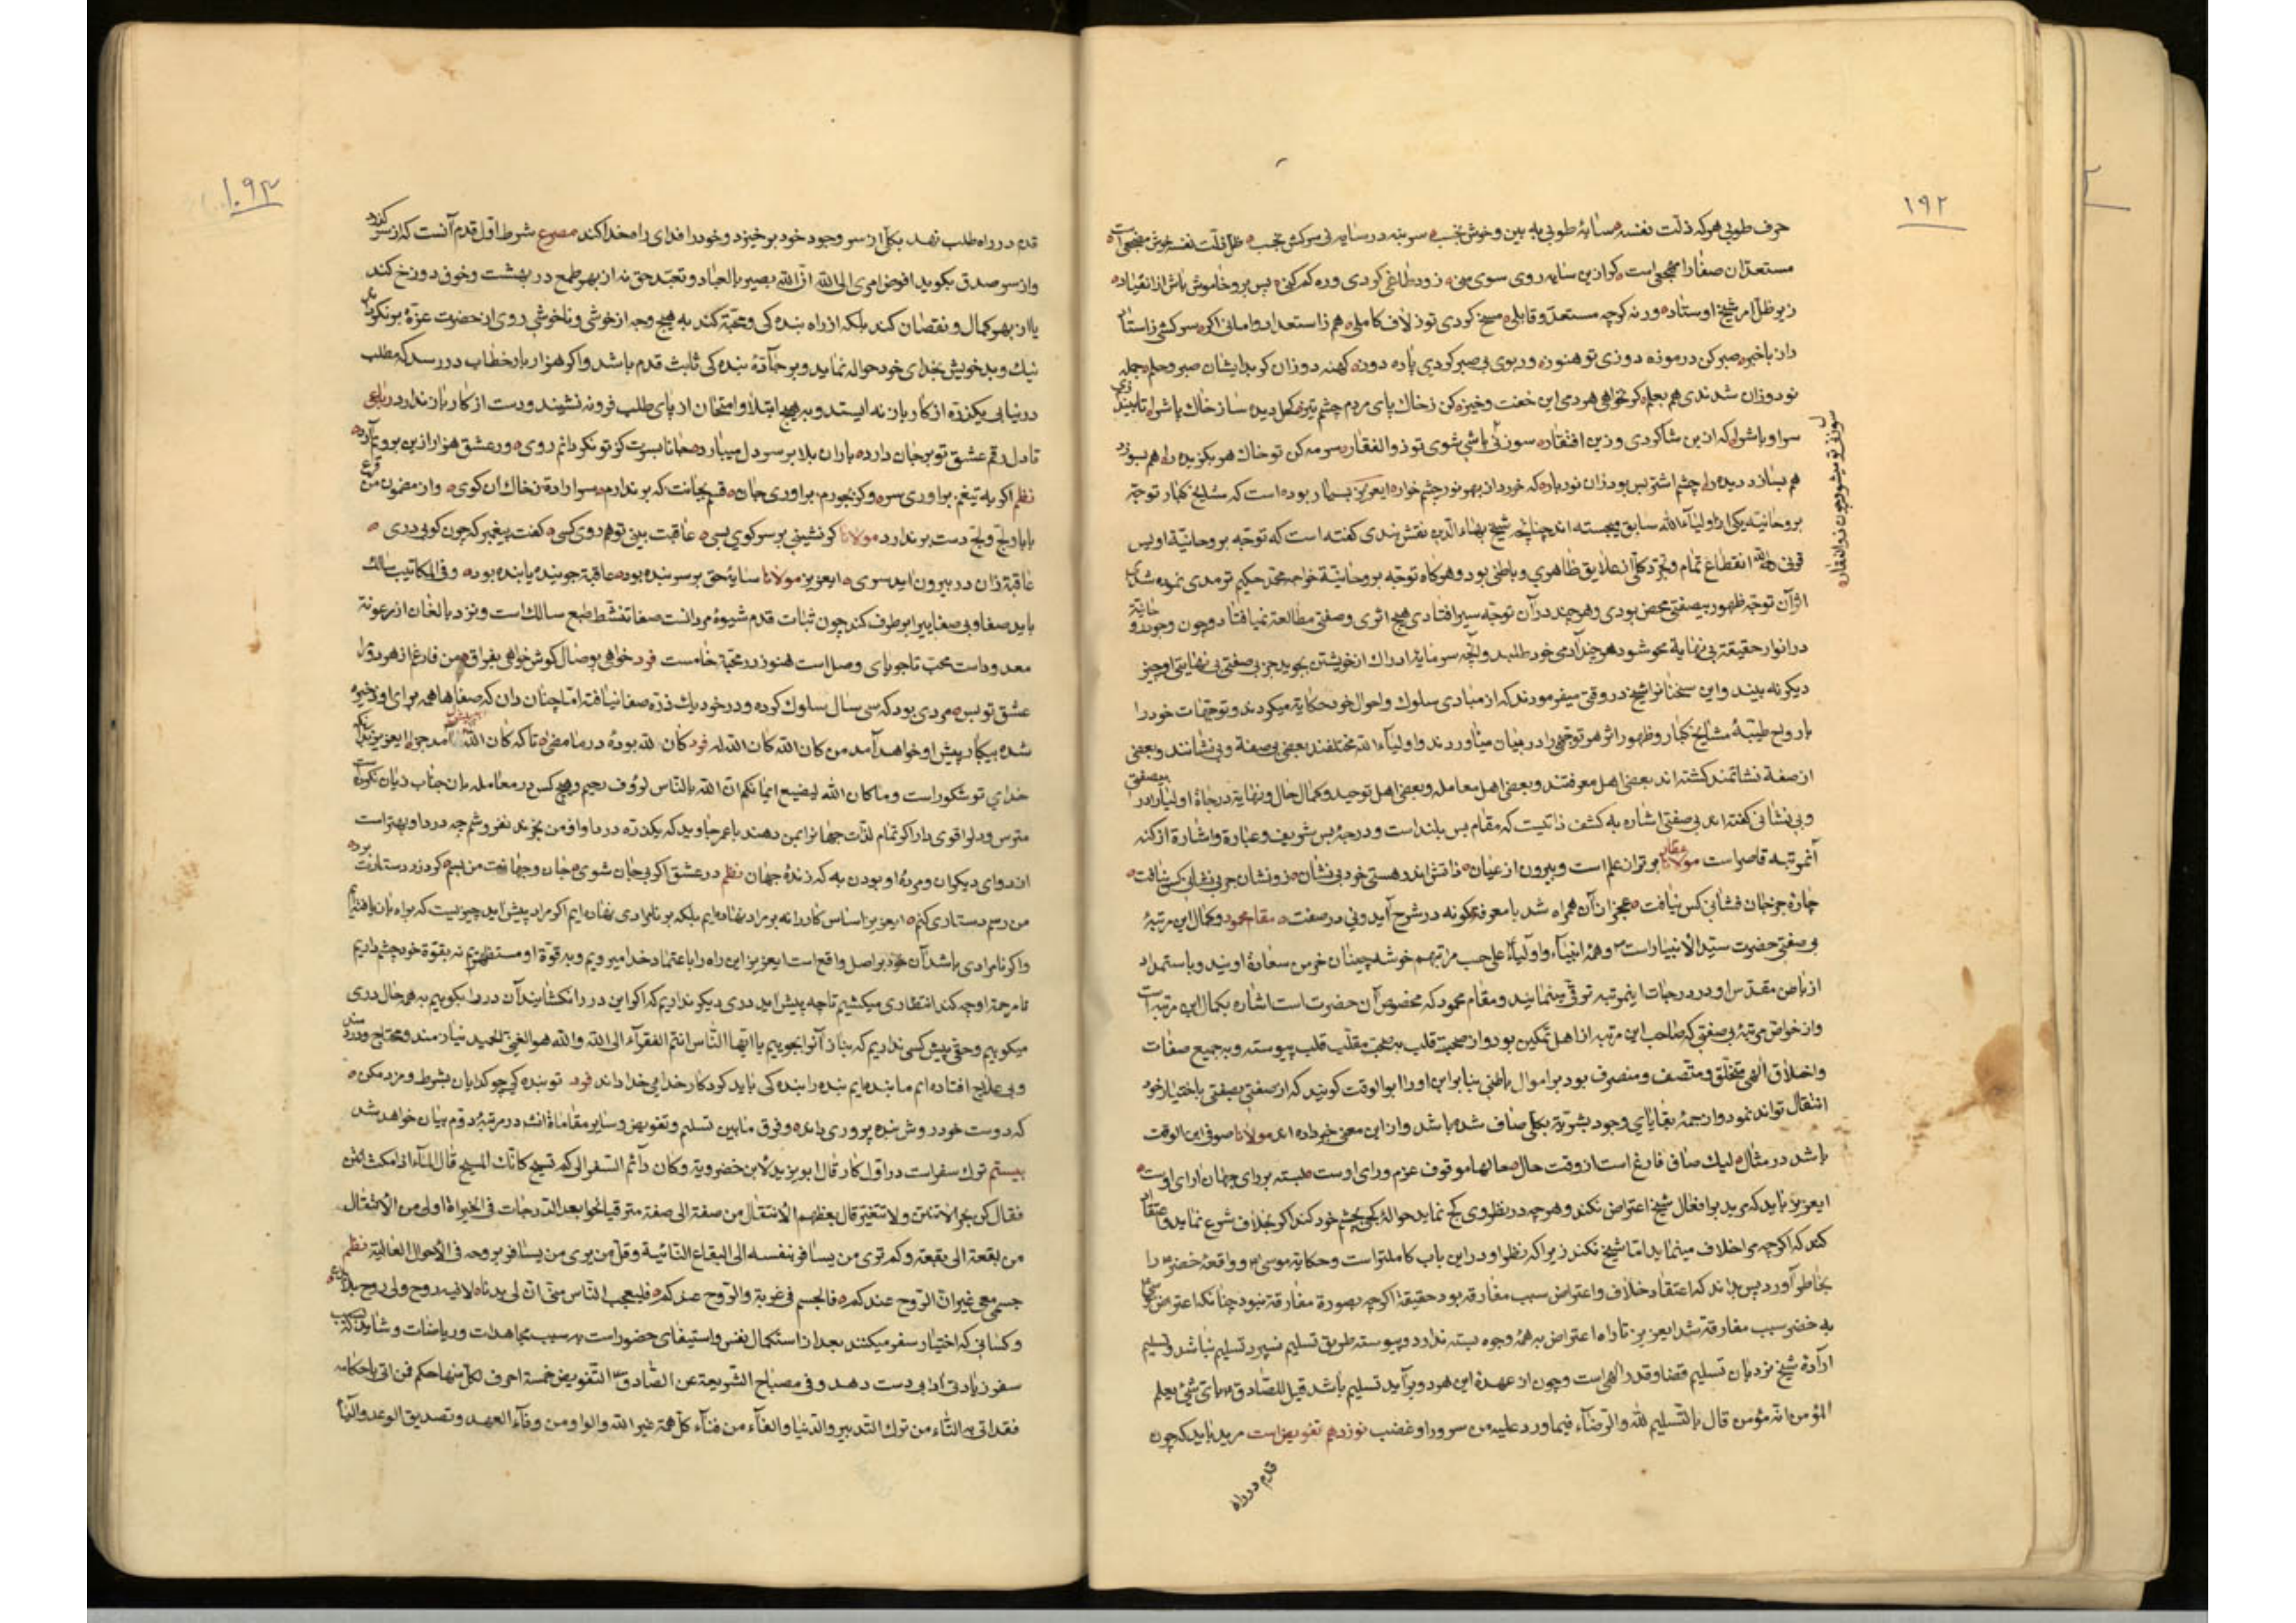 ١٩٢
حرف طوبی هر که ذلت نفسه سایهٔ طوبی به بین و خوش بخسب سر بنه در سایه بی سرکش بخسب ظل ذلت نفسه خوش مضجعی است
مستعد آن صفا را مهجعی است کر ازین سایه روی سوی منی زود طاغی کردی و ره کم کنی پس برو خاموش باش از انقیاد
زیر ظل امر شیخ اوستاد ورنه کرچه مستعد و قابلی مسخ کردی تو ز لاف کاملی هم ز استعداد وامانی اکر سرکشی ز استاد
راز با خبر صبر کن در موزه دوزی تو هنوز ور بوی بی صبر کردی پاره دوز کهنه دوزان کر بدایشان صبر و حلم جمله
نو دوزان شدندی هم بعلم کر نخواهی هر دمی این خفت و خیز کن ز خاک پای مردم چشم تیز کحل دیده ساز خاک پاش را تا ببیند
سر اوباش را که ازین شاکردی و زین افتقار سوزنی باشی شوی تو ذوالفقار سرمه کن تو خاک هر بکزیده را هم بسوزد
سوزنی تو میشود چون ذوالفقار
هم بسازد دیده را چشم اشتر بس بود زان نوربار که خورد از بهر نور چشم خار ایعزیز بسیار بوده است که مشایخ کبار توجه
بروحانیة یکی از اولیاء الله سابق میجسته اند چنانچه شیخ بهاء الدین نقش بندی کفته است که توجه بروحانیة اویس
قرنی انقطاع تمام و تجرد کلی از علایق ظاهری و باطنی بود و هرکاه توجه بروحانیة خواجه محمد حکیم ترمدی نموده شدی
اثر آن توجه ظهور بیصفتی محض بودی و هر چند در آن توجه سیر افتادی هیچ اثری و صفتی مطالعه نمیافتاد و چون وجود
در انوار حقیقة بی نهایة محو شود هر چند آدمی خود طلبد و آنچه سرمایهٔ ادراک از خویشتن بجوید جز بی صفتی بی نهایتی او چیز
دیکر نه بیند و این سخنانرا شیخ در وقتی میفرمودند که از مبادی سلوک و احوال خود حکایة میکردند و توجهات خود را
بارواح طیبهٔ مشایخ کبار و ظهور اثر هر توجهی را در میان میاوردند و اولیاء الله مختلفند بعضی بی صفة و بی نشانند و بعضی
از صفة نشانمند کشته اند بعضی اهل معرفتند و بعضی اهل معامله و بعضی اهل توحید و کمال حال و نهایة درجاة اولیا را در بیصفتی
و بی نشانی کفته اند بی صفتی اشاره به کشف ذاتیست که مقام بس بلند است و درجهٔ بس شریف و عبارة و اشارة از کنه
آنمرتبه قاصر است مولانا برتر از علم است و بیرون از عیان ذاتش اندر هستی خود بی نشان زو نشان جز بی نشانی کس نیافت
چارهٔ جز جان فشانی کس نیافت عجز از آن همراه شد با معرفة کو نه در شرح آید و نی در صفت مقام محمود و کمال این مرتبهٔ
بی صفتی حضرت سید الانبیا راست و همهٔ انبیاء و اولیاء علی حسب مراتبهم خوشه چینان خرمن سعادة اویند و باستمداد
از باطن مقدس او در درجات اینمرتبه ترقی مینمایند و مقام محمود که مخصوص آن حضرت است اشاره بکمال این مرتبه است
و از خواص مرتبهٔ بی صفتی که صاحب این مرتبه از اهل تمکین بود و از صحبت قلب به صحبت مقلب قلب پیوسته و به جمیع صفات
و اخلاق الهی متخلق و متصف و متصرف بود بر اموال باطنی بنا براین او را ابوالوقت کویند که از صفتی بصفتی باختیار خود
انتقال تواند نمود و از جمهٔ بقایای وجود بشریة بکلی صاف شده باشد و از این معنی خبر داده اند مولانا صوفی ابن الوقت
باشد در مثال لیک صافی فارغ است از وقت حال حالها موقوف عزم و رای اوست بسته بر رای جهان آرای اوست
ایعزیز باید که مرید بر افعال شیخ اعتراض نکند و هر چه در نظر وی کج نماید حواله کجی بچشم خود کند اکر بخلاف شرع نماید و اعتقاد
کند که اکرچه مرا خلاف مینماید اما شیخ نکند زیرا که نظر او در این باب کاملتر است و حکایة موسی و واقعهٔ خضر را
بخاطر آورد پس بداند که اعتقاد خلاف و اعتراض سبب مفارقه بود حقیقة اکرچه بصورة مفارقة نبود چنانکه اعتراض موسی
به خضر سبب مفارقة شد ایعزیز تا راه اعتراض به همه وجوه بسته ندارد و پیوسته طریق تسلیم نسپرد تسلیم نباشد و تسلیم
ارادة شیخ نزدبان تسلیم قضا و قدر الهی است و چون از عهدهٔ این هر دو برآید تسلیم باشد قیل للصادق بای شیء یعلم
المؤمن انه مؤمن قال بالتسلیم لله و الرضاء فیما ورد علیه من سرور او غضب نوزدهم تفویض است مرید باید که چون
قدم در راه
١٩٣
قدم در راه طلب نهد بکلی از سر وجود خود برخیزد و خود را فدای راه خدا کند مصرع شرط اول قدم آنست که از سر کذرد
و از سر صدق بکوید افوض امری الی الله ان الله بصیر بالعباد و تعبد حق نه از بهر طمع در بهشت و خوف دوزخ کند
یا از بهر کمال و نقصان کند بلکه از راه بنده کی و محبة کند به هیچ وجه از خوشی و ناخوشی روی از حضرت عزة بر نکرداند
نیک و بد خویش بخدای خود حواله نماید و بر جادهٔ بنده کی ثابت قدم باشد و اکر هزار بار خطاب در رسد که مطلب
در نیابی یکذره از کار باز نه ایستد و به هیچ ابتلا و امتحان از پای طلب فرو نه نشیند و دست از کار باز ندارد رباعی
تا دل رقم عشق تو بر جان دارد باران بلا بر سر دل میبارد جانا بسرت کز تو نکردانم روی ور عشق هزار ازین برویم آرد
نظم اکر به تیغم براوری سر وکر بجورم براوری جان قسم بجانت که بر ندارم سر ارادة ز خاک آن کوی و از مضمون من قرع
بابا و لج و لج دست بر ندارد مولانا کر نشینی بر سر کوی کسی عاقبت بینی تو هم روی کسی کفت پیغمبر که چون کوبی دری
عاقبة زان در برون اید سری ایعزیز مولانا سایهٔ حق بر سر بنده بود عاقبة جوینده یابنده بود و فی المکاتیب سالک
باید صفا و بی صفایی را بر طرف کند چون ثبات قدم شیوهٔ مردانست صفا تنشط طبع سالک است و نزد بالغان از رعونة
معدود است محب تا جویای وصل است هنوز در محبة خام است فرد خواهی بوصال کوش خواهی بفراق من فارغ از هر دو
عشق تو بس مردی بود که سی سال سلوک کرده و در خود یک ذره صفا نیافته اما چنان دان که صفاها همه برای او ذخیره
شده بیکبار پیش او خواهد آمد من کان الله کان الله له فرد کان لله بودهٔ در ما مضی تا که کان الله آمد جزا ایعزیز
خدای تو شکور است و ما کان الله لیضیع ایمانکم ان الله بالناس لرؤف رحیم و هیچ کس در معامله بان جناب زیان نکرده
مترس و دل را قوی دار اکر تمام لذات جهانرا بمن دهند با عمر جاوید که یکذره درد او از من بخرند نفروشم چه درد او بهتر است
از دوای دیکران و مردهٔ او بودن به که زندهٔ جهان نظم در عشق اکر بی جان شوی جان و جهانت من بسم
من رسم دستاری کنم ایعزیز اساس کار را نه بر مراد نهاده ایم بلکه بر نامرادی نهاده ایم اکر مراد پیش اید چیزیست که براه بازیافته ایم
و اکر نامرادی باشد آن خود بر اصل واقع است ایعزیز این راه را باعتماد خدا میرویم و به قوة او مستظهریم نه بقوة خود چشم داریم
تا مرحمة او چه کند انتظاری میکشیم تا چه پیش اید دری دیکر نداریم که اکر این در را نکشایند آن در را بکوبیم به هر حال دری
میکوبیم و حقی پیش کسی نداریم که بناز آنرا بجوییم یا ایها الناس انتم الفقراء الی الله و الله هو الغنی الحمید نیازمند و محتاج و دردمند
و بی علاج افتاده ایم ما بنده ایم بنده را بنده کی باید کرد کار خدایی خدا داند فرد تو بنده کی چو کدایان بشرط مزد مکن
که دوست خود روش بنده پروری داند و فرق مابین تسلیم و تفویض و سایر مقاماة انشاء در مرتبهٔ دوم بیان خواهد شد
بیستم ترک سفر است در اول کار قال ابو یزید لابن خضرویة و کان دائم السفر الی کم تسیح کانک المسیح قال الماء اذا مکث انتن
فقال کن بحرا لا تنتن و لا تتغیر قال بعضهم الانتقال من صفة الی صفة مترقیا نحوا بعد الدرجات فی الخیراة اولی من الانتقال
من بقعة الی بقعة و کم تری من یسافر بنفسه الی البقاع النائیة و قل من یری من یسافر بروحه فی الاحوال العالیة نظم
جسمی معی غیر ان الروح عندکم فالجسم فی غربة و الروح عندکم فلیعجب الناس منی ان لی بدنا لا فیه روح ولی روح بلا بدن
و کسانی که اختیار سفر میکنند بعد از استکمال نفس و استیفای حضور است به سبب مجاهدات و ریاضات
سفر زیادتی ادابی دست دهد و فی مصباح الشریعة عن الصادق التفویض خمسة احرف لکل منها حکم فمن اتی باحکامه
فقد اتی به التاء من ترک التدبیر و الدنیا و الفاء من فناء کل همة غیر الله و الواو من وفاء العهد و تصدیق الوعد و الیاء